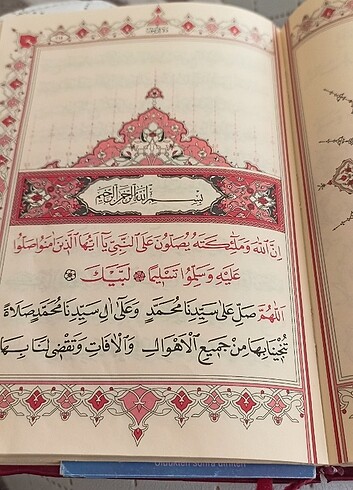 بِسْمِ اللهِ الرَّحْمٰنِ الرَّحِيمِ
اِنَّ اللهَ وَمَلٰئِكَتَهُ يُصَلُّونَ عَلَى النَّبِيِّ يَا اَيُّهَا الَّذِينَ اٰمَنُوا صَلُّوا
عَلَيْهِ وَسَلِّمُوا تَسْلِيمًا لَبَّيْكَ
اَللّٰهُمَّ صَلِّ عَلٰى سَيِّدِنَا مُحَمَّدٍ وَعَلٰى اٰلِ سَيِّدِنَا مُحَمَّدٍ صَلَاةً
تُنْجِينَا بِهَا مِنْ جَمِيعِ الْاَهْوَالِ وَالْاٰفَاتِ وَتَقْضِى لَنَا بِهَا